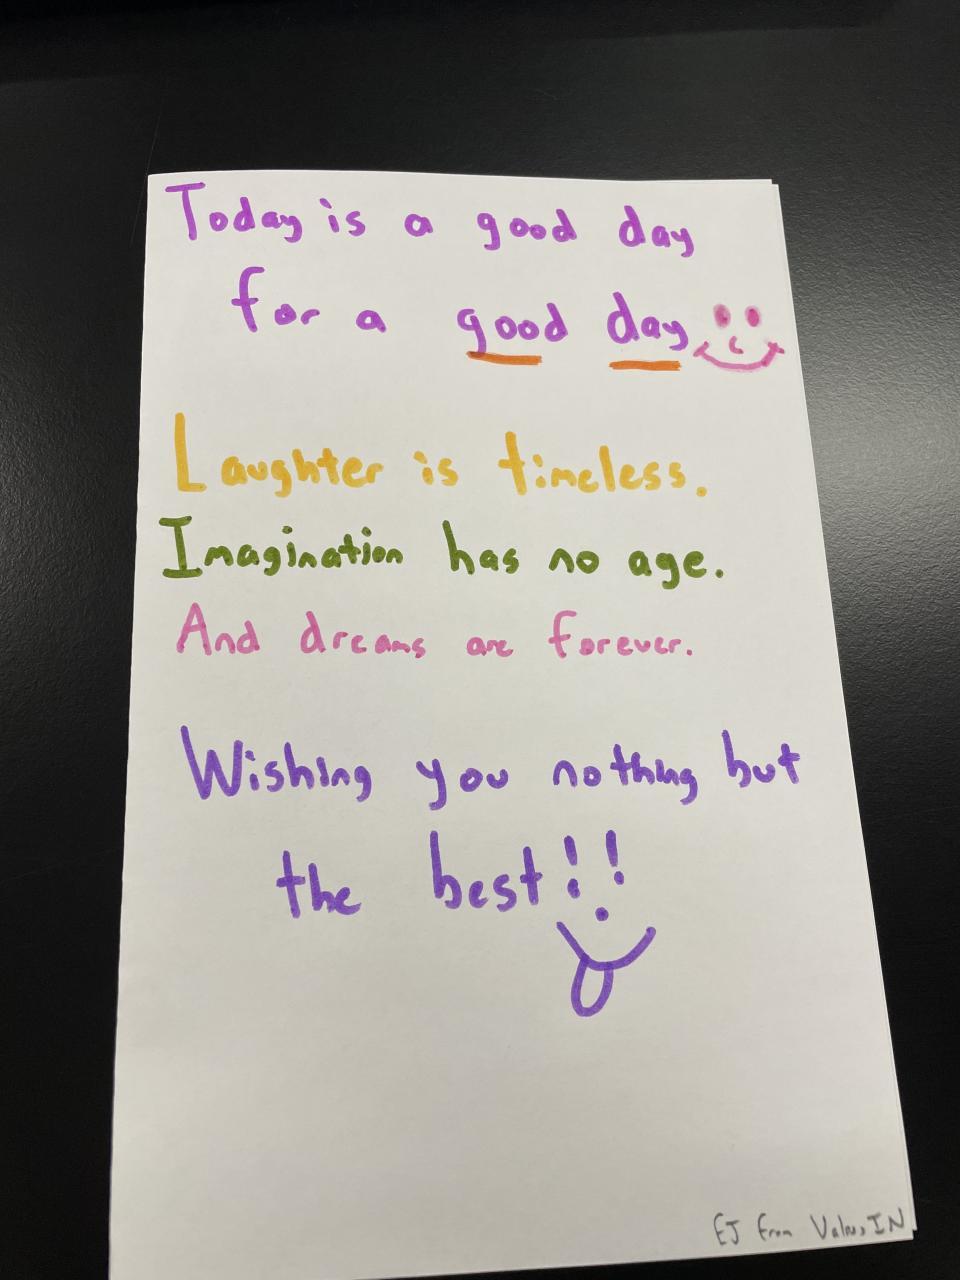 Today is a good day
for a good day
Laughter is timeless.
Imagination has no age.
And dreams are forever.
Wishing you nothing but
the best!!
EJ from Valpo, IN